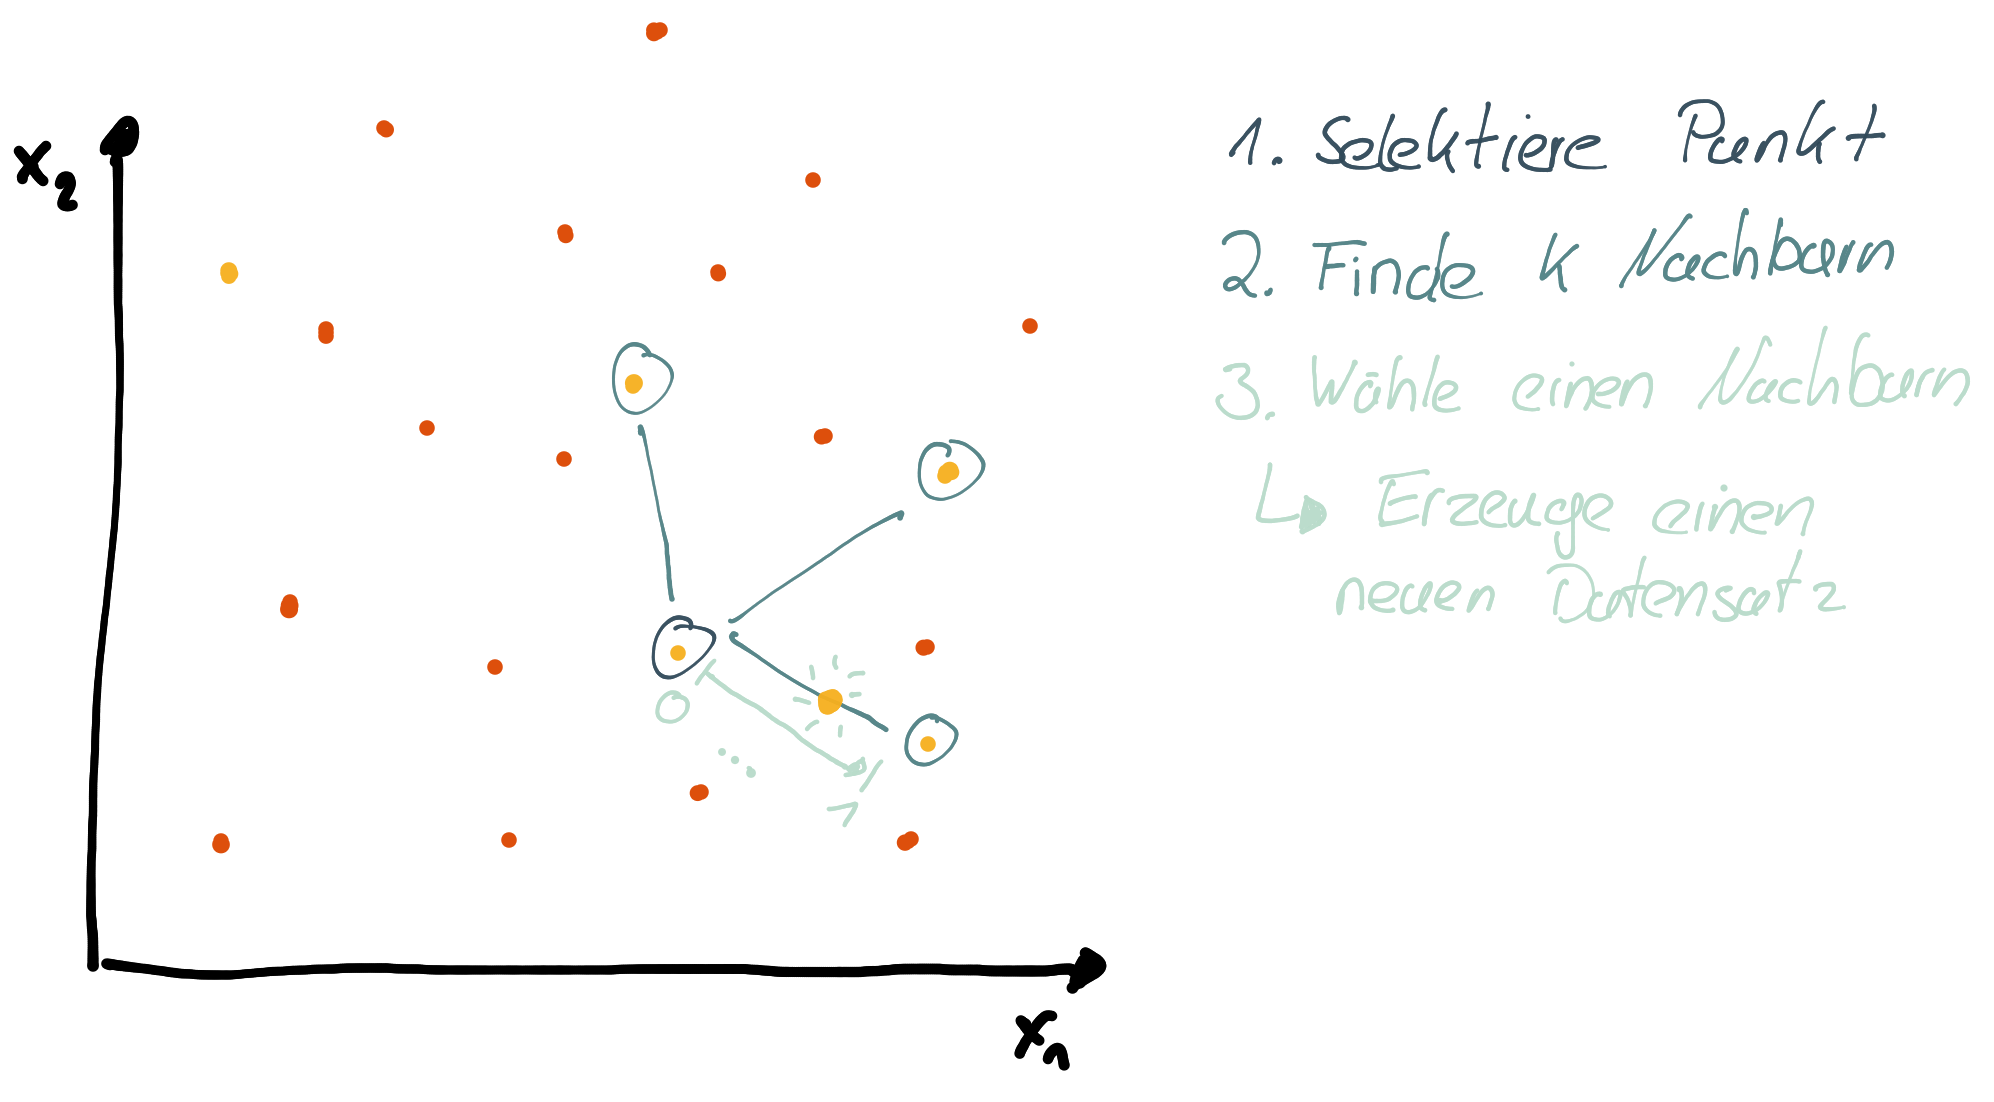 x2
1. Selektiere Punkt
2. Finde K Nachbarn
3. Wähle einen Nachbarn
↳ Erzeuge einen
neuen Datensatz
0 ... 1
x1